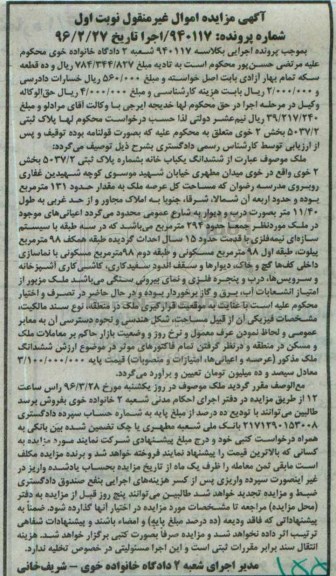 آگهی مزایده اموال غیرمنقول نوبت اول
شماره پرونده: ۹۴۰۱۱۷/اجرا تاریخ ۹۶/۲/۲۷
بموجب پرونده اجرایی بکلاسه ۹۴۰۱۱۷ شعبه ۲ دادگاه خانواده خوی محکوم
علیه مرتضی حسن‌پور محکوم است به تادیه مبلغ ۷۸۴/۳۴۴/۸۲۷ ریال و ده قطعه
سکه تمام بهار آزادی بابت اصل خواسته و مبلغ ۵۶۰/۰۰۰ ریال خسارات دادرسی
و ۲/۰۰۰/۰۰۰ ریال بابت هزینه کارشناسی و مبلغ ۴/۰۰۰/۰۰۰ ریال حق‌الوکاله
وکیل در مرحله اجرا در حق محکوم لها خدیجه ایرجی با وکالت آقای مرادلو و مبلغ
۳۹/۲۱۷/۲۴۰ ریال نیم‌عشر دولتی لذا حسب درخواست محکوم لها پلاک ثبتی
۵۰۳۷/۲ بخش ۲ خوی متعلق به محکوم علیه که بصورت قولنامه بوده توقیف و پس
از ارزیابی توسط کارشناس رسمی دادگستری بشرح ذیل توصیف می‌گردد:
ملک موصوف عبارت از ششدانگ یکباب خانه بشماره پلاک ثبتی ۵۰۳۷/۲ بخش
۲ خوی واقع در خوی میدان مطهری خیابان شهید موسوی کوچه شهیدین غفاری
روبروی مدرسه رضوان که مساحت کل عرصه ملک به مقدار حدود ۱۳۱ مترمربع
بوده و حدود اربعه آن شمالا، شرقا، جنوبا به املاک مجاور و از حد غربی به طول
۱۱/۴۰ متر بصورت درب و دیوار به شارع عمومی محدود می‌گردد اعیانی‌های موجود
در ملک موردنظر جمعا حدود ۲۹۴ مترمربع می‌باشد که در سه طبقه با سیستم
سازه‌ای نیمه‌فلزی با قدمت حدود ۱۵ سال احداث گردیده طبقه همکف ۹۸ مترمربع
پیلوت، طبقه اول ۹۸ مترمربع مسکونی و طبقه دوم ۹۸مترمربع مسکونی با نماسازی
داخلی کف‌ها گچ و خاک، دیوارها و سقف اندود سفیدکاری، کاشی‌کاری آشپزخانه
و سرویس‌ها، درب و پنجره فلزی و نمای بیرونی سنگی می‌باشد ملک مزبور از
امتیاز انشعابات آب، برق و گاز برخوردار بوده و در حال حاضر در تصرف و اختیار
محکوم علیه است با عنایت به موقعیت قرارگیری ملک در منطقه، نوع سند مالکیت،
مشخصات فیزیکی آن از قبیل مساحت، شکل هندسی و نحوه دسترسی آن به معابر
عمومی و لحاظ نمودن عرف معمول و نرخ روز و وضعیت بازار حاکم بر معاملات ملک
و مسکن در منطقه و درنظر گرفتن تمام فاکتورهای موثر در موضوع ارزش ششدانگ
ملک مذکور (عرصه و اعیانی‌ها، امتیازات و منصوبات) قیمت پایه ۳/۱۰۰/۰۰۰/۰۰۰
معادل سیصد و ده میلیون تومان تعیین و برآورد می‌گردد.
مع‌الوصف مقرر گردید ملک موصوف در روز یکشنبه مورخ ۹۶/۳/۲۸ راس ساعت
۱۲ از طریق مزایده در دفتر اجرای احکام مدنی شعبه ۲ خانواده خوی بفروش برسد
طالبین می‌توانند با تودیع ده درصد از مبلغ پایه به شماره حساب سپرده دادگستری
۲۱۷۱۲۹۰۱۵۳۰۰۸ بانک ملی شعبه مطهری یا چک تضمین شده بین بانکی به
همراه درخواست کتبی خود و درج مبلغ پیشنهادی شرکت نمایند مورد مزایده به
کسانی که بالاترین قیمت را پیشنهاد نمایند فروخته خواهد شد و برنده مزایده مکلف
است مابقی ثمن معامله را ظرف یک ماه از تاریخ مزایده بحساب یادشده واریز در
غیر اینصورت سپرده واریزی پس از کسر هزینه‌های اجرایی بنفع صندوق دادگستری
ضبط و مزایده تجدید خواهد شد طالبین می‌توانند پنج روز قبل از مزایده به دفتر
(محل مزایده) مراجعه تا مشخصات مورد مزایده در اختیار آنها گذارده شود. ضمنا به
پیشنهاداتی که فاقد ودیعه (ده درصد مبلغ پایه) و امضاء باشند و پیشنهادات شفاهی
ترتیب اثر داده نخواهد شد و مزایده صرفا بصورت کتبی برگزار خواهد شد. هزینه
انتقال سند برابر مقررات ثبتی است و این اجرا مسئولیتی در خصوص تخلیه ندارد.
مدیر اجرای شعبه ۲ دادگاه خانواده خوی – شریف‌خانی